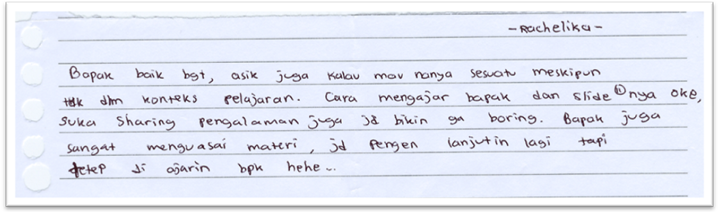 -Rachelika-
Bapak baik bgt, asik juga kalau mau nanya sesuatu meskipun
tdk dlm konteks pelajaran. Cara mengajar bapak dan slide⁽²⁾nya oke,
suka sharing pengalaman juga jd bikin ga boring. Bapak juga
sangat menguasai materi, jd pengen lanjutin lagi tapi
tetep di ajarin bpk hehe..